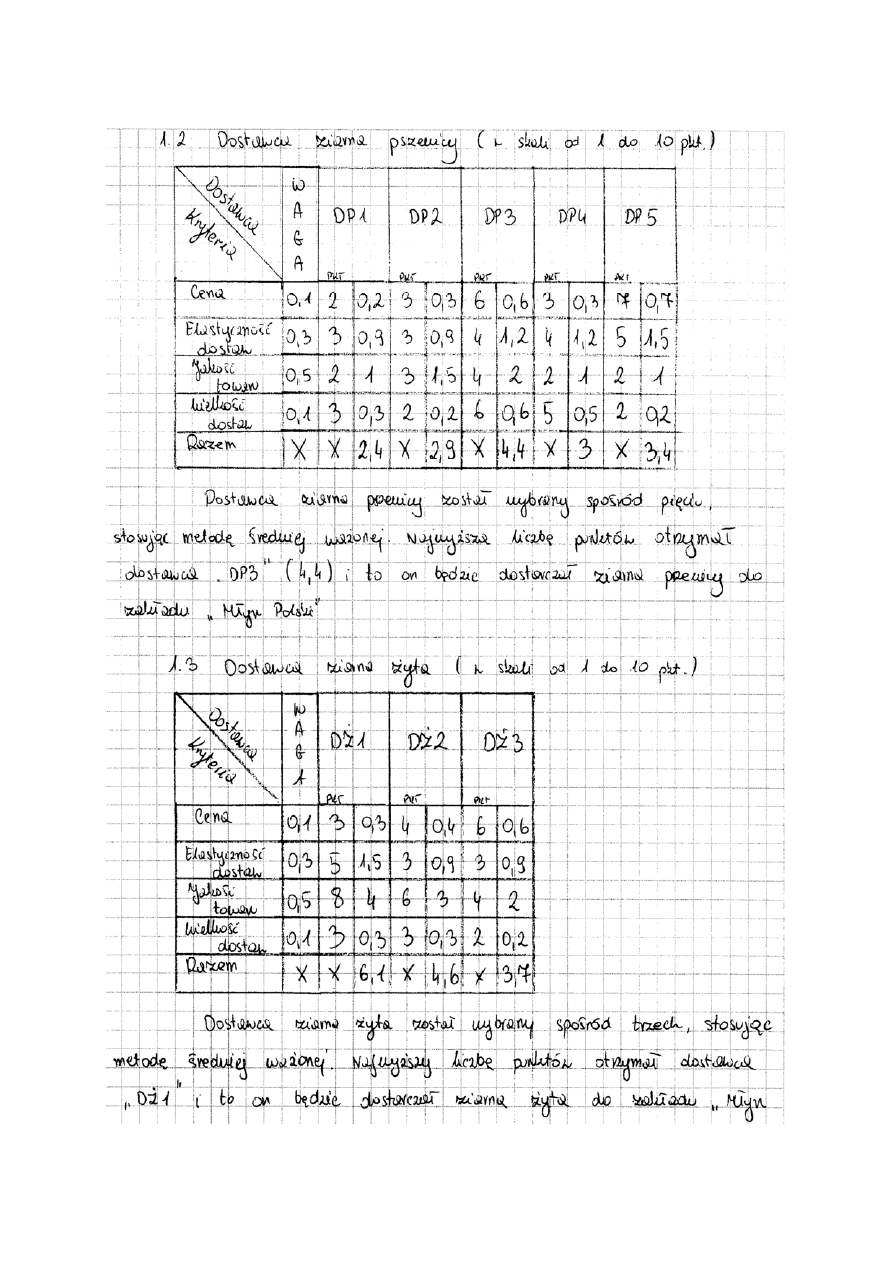 1.2 Dostawca ziarna pszenicy (w skali od 1 do 10 pkt.)
Dostawca Kryteria WAGA DP1 DP2 DP3 DP4 DP5
PKT PKT PKT PKT PKT
Cena 0,1 2 0,2 3 0,3 6 0,6 3 0,3 7 0,7
Elastyczność dostaw 0,3 3 0,9 3 0,9 4 1,2 4 1,2 5 1,5
Jakość towaru 0,5 2 1 3 1,5 4 2 2 1 2 1
Wielkość dostaw 0,1 3 0,3 2 0,2 6 0,6 5 0,5 2 0,2
Razem X X 2,4 X 2,9 X 4,4 X 3 X 3,4
Dostawca ziarna przenicy został wybrany spośród pięciu,
stosując metodę średniej ważonej. Najwyższa liczbę punktów otrzymał
dostawca „DP3" (4,4) i to on będzie dostarczał ziarna przenicy do
zakładu „Młyn Polski"
1.3 Dostawca ziarna żyta (w skali od 1 do 10 pkt.)
Dostawca Kryteria WAGA DŻ1 DŻ2 DŻ3
PKT PKT PKT
Cena 0,1 3 0,3 4 0,4 6 0,6
Elastyczność dostaw 0,3 5 1,5 3 0,9 3 0,9
Jakość towaru 0,5 8 4 6 3 4 2
Wielkość dostaw 0,1 3 0,3 3 0,3 2 0,2
Razem X X 6,1 X 4,6 X 3,7
Dostawca ziarna żyta został wybrany spośród trzech, stosując
metodę średniej ważonej. Najwyższy liczbę punktów otrzymał dostawca
„DŻ1" i to on będzie dostarczał ziarna żyta do zakładu „Młyn